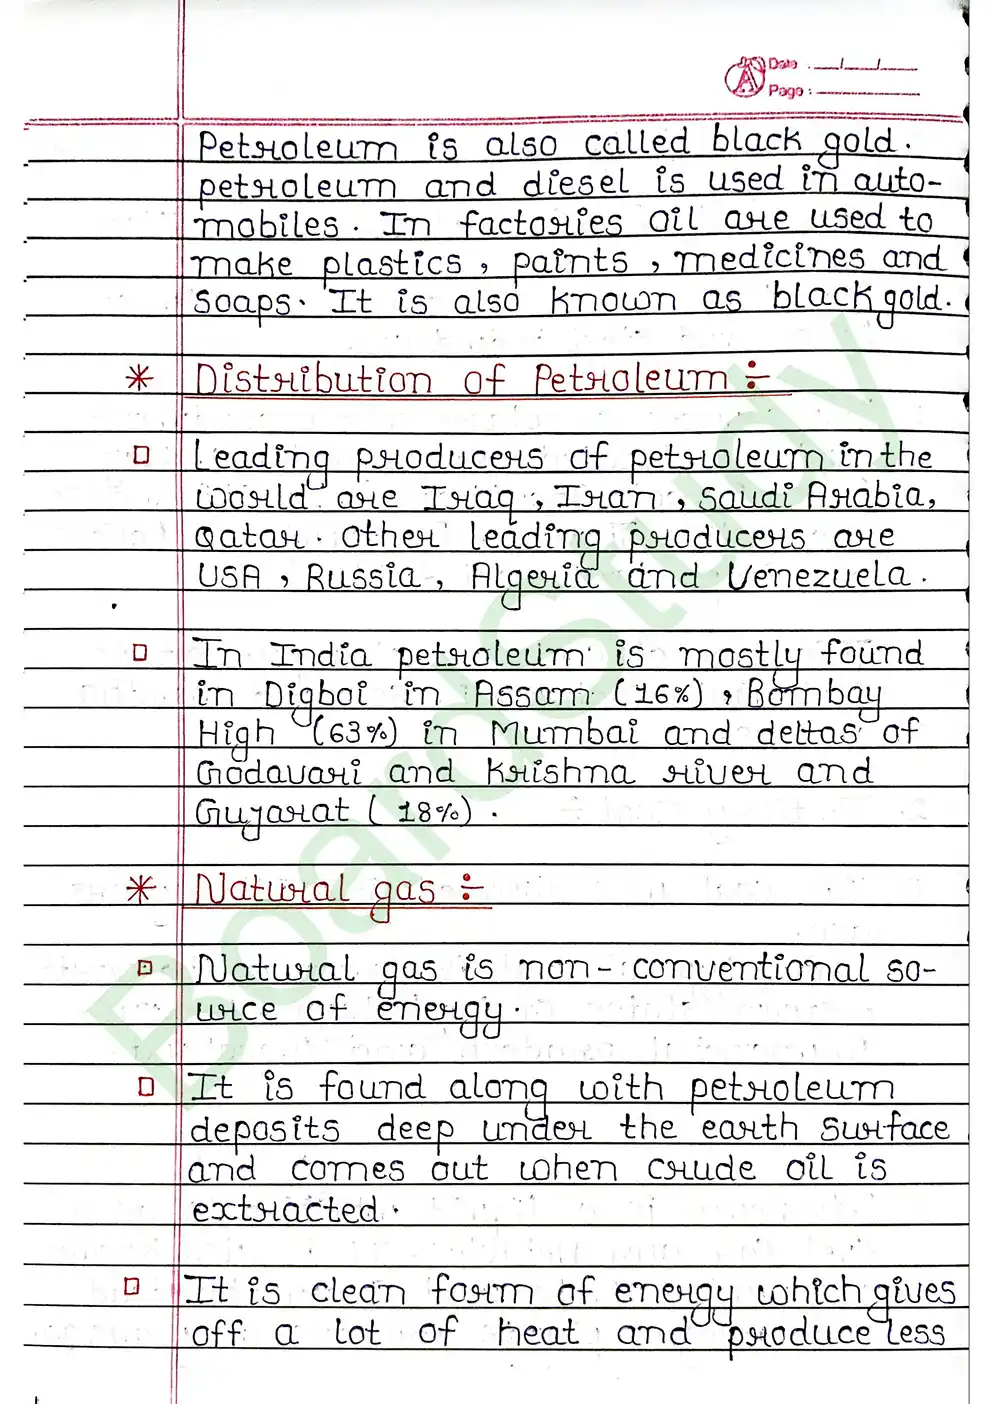 Date : __/__/__
Page : ________
Petroleum is also called black gold.
petroleum and diesel is used in auto-
mobiles. In factories oil are used to
make plastics, paints, medicines and
soaps. It is also known as black gold.
* Distribution of Petroleum ÷
□ Leading producers of petroleum in the
world are Iraq, Iran, Saudi Arabia,
Qatar. Other leading producers are
USA, Russia, Algeria and Venezuela.
□ In India petroleum is mostly found
in Digboi in Assam (16%), Bombay
High (63%) in Mumbai and deltas of
Godavari and Krishna river and
Gujarat (18%).
* Natural gas ÷
□ Natural gas is non-conventional so-
urce of energy.
□ It is found along with petroleum
deposits deep under the earth surface
and comes out when crude oil is
extracted.
□ It is clean form of energy which gives
off a lot of heat and produce less
BoardStudy